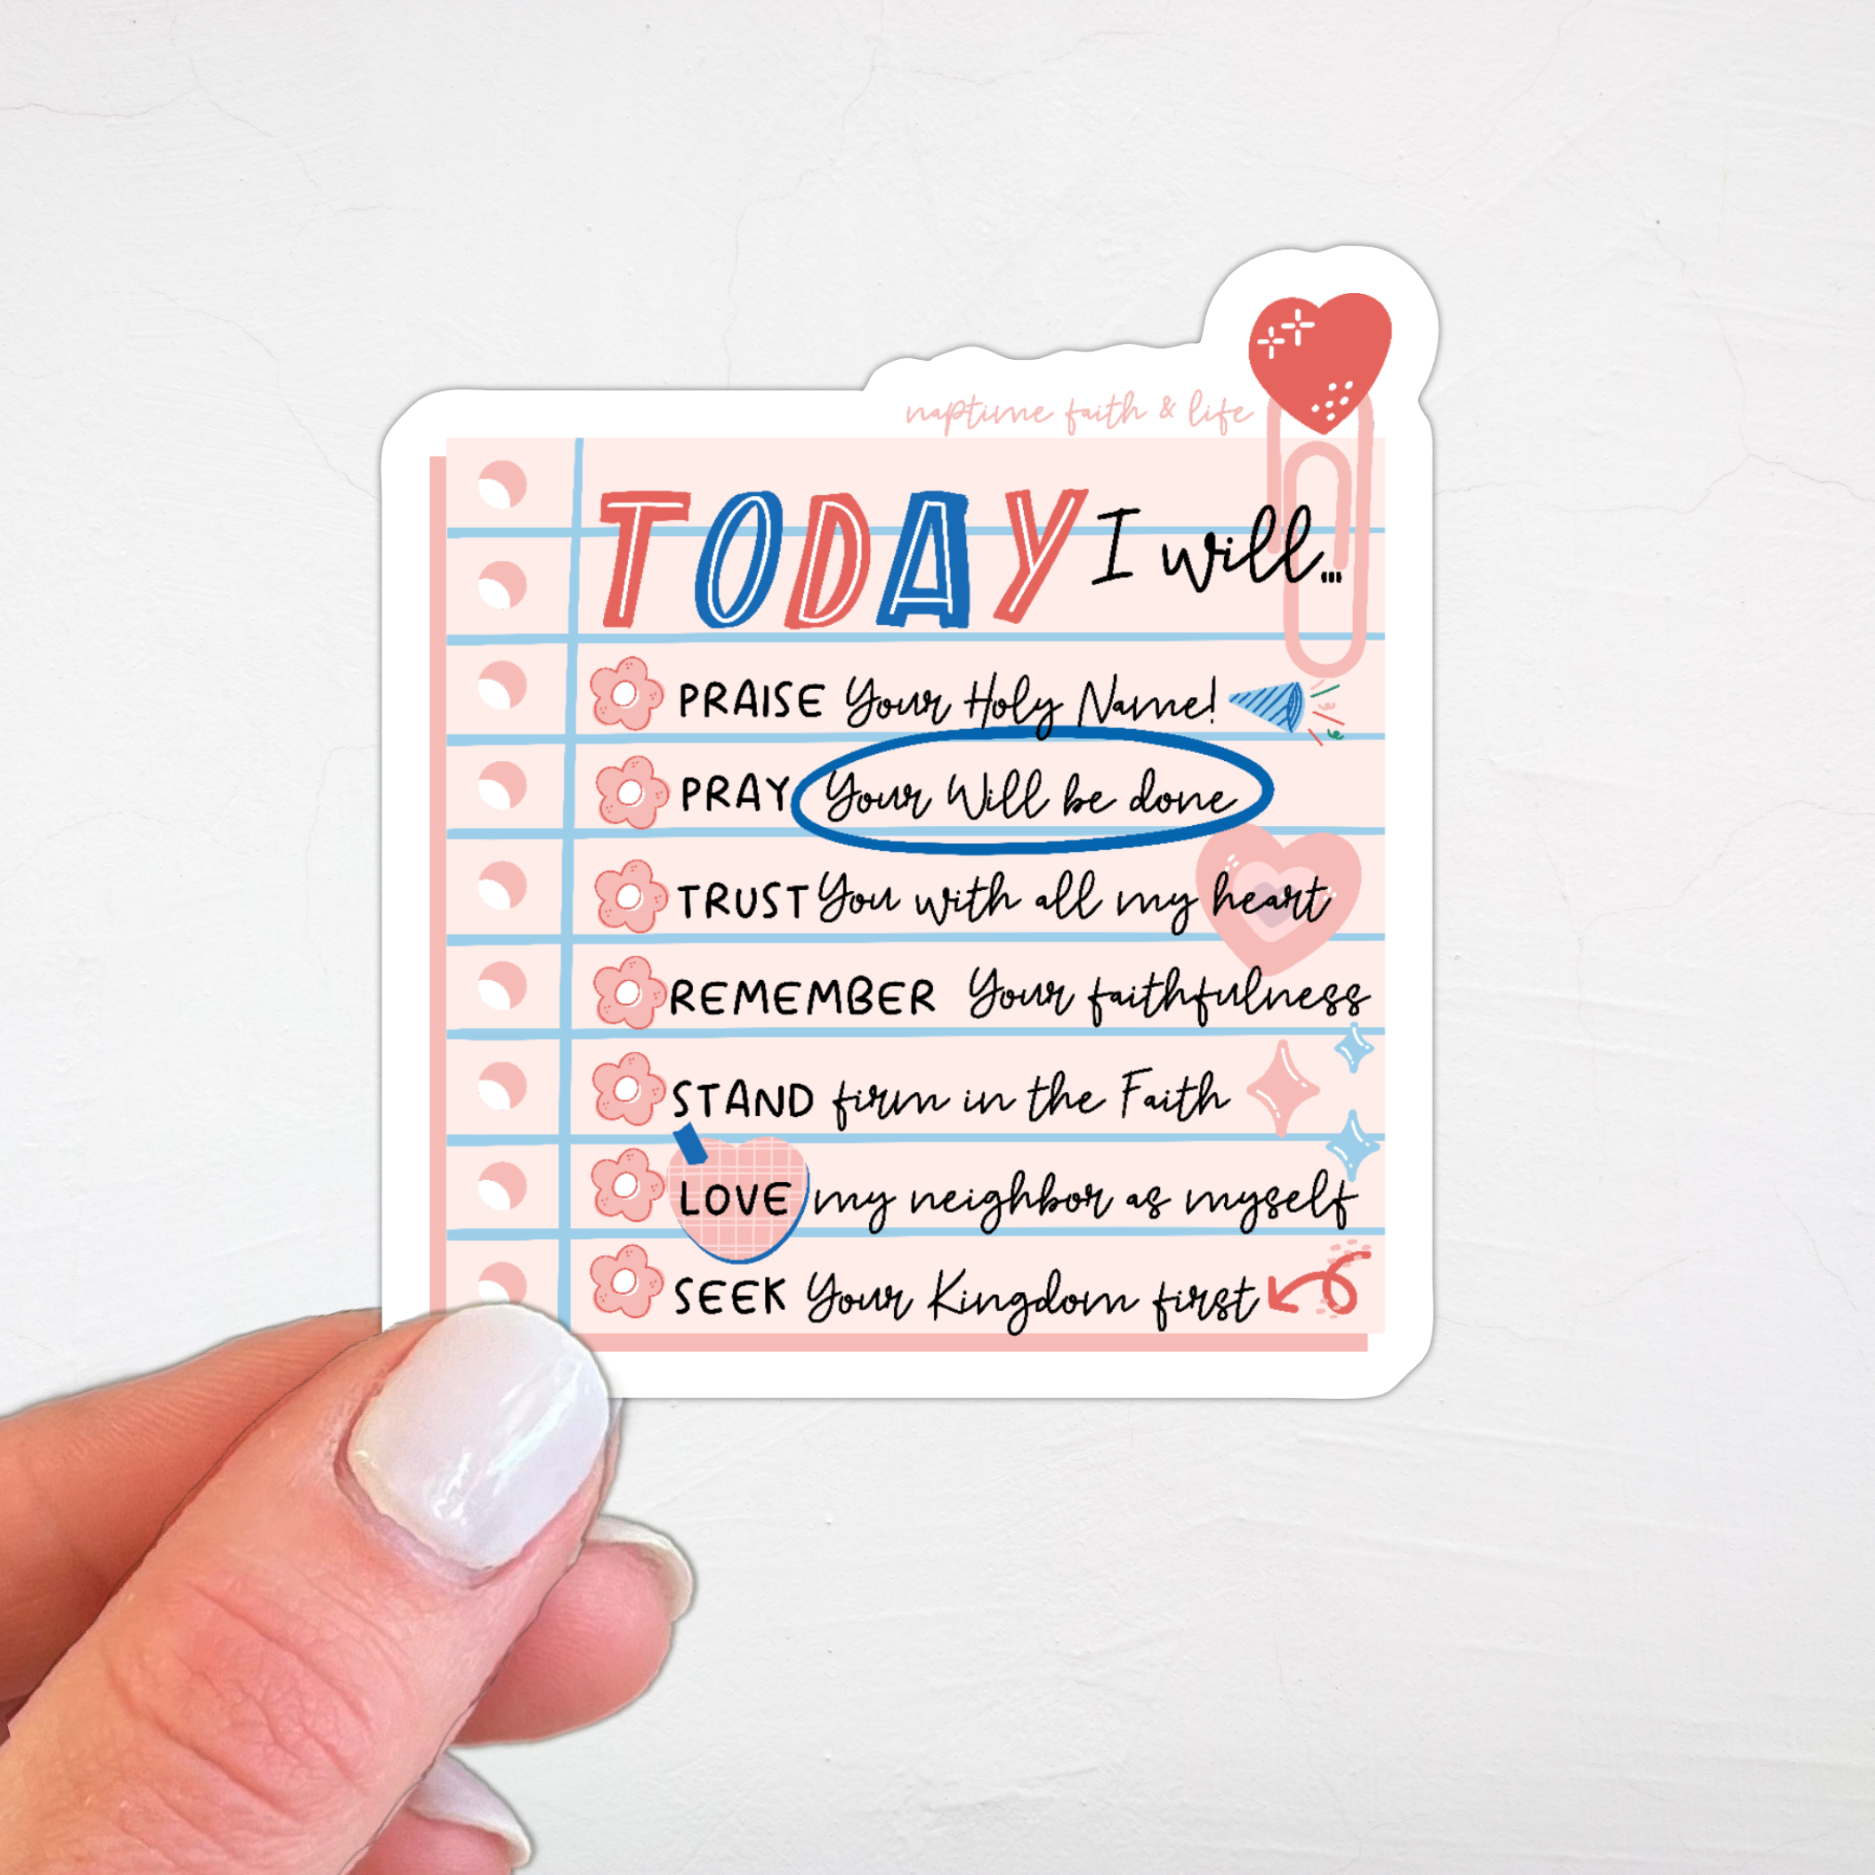 naptime faith & life
TODAY I will...
PRAISE Your Holy Name!
PRAY Your Will be done
TRUST You with all my heart
REMEMBER Your faithfulness
STAND firm in the Faith
LOVE my neighbor as myself
SEEK Your Kingdom first